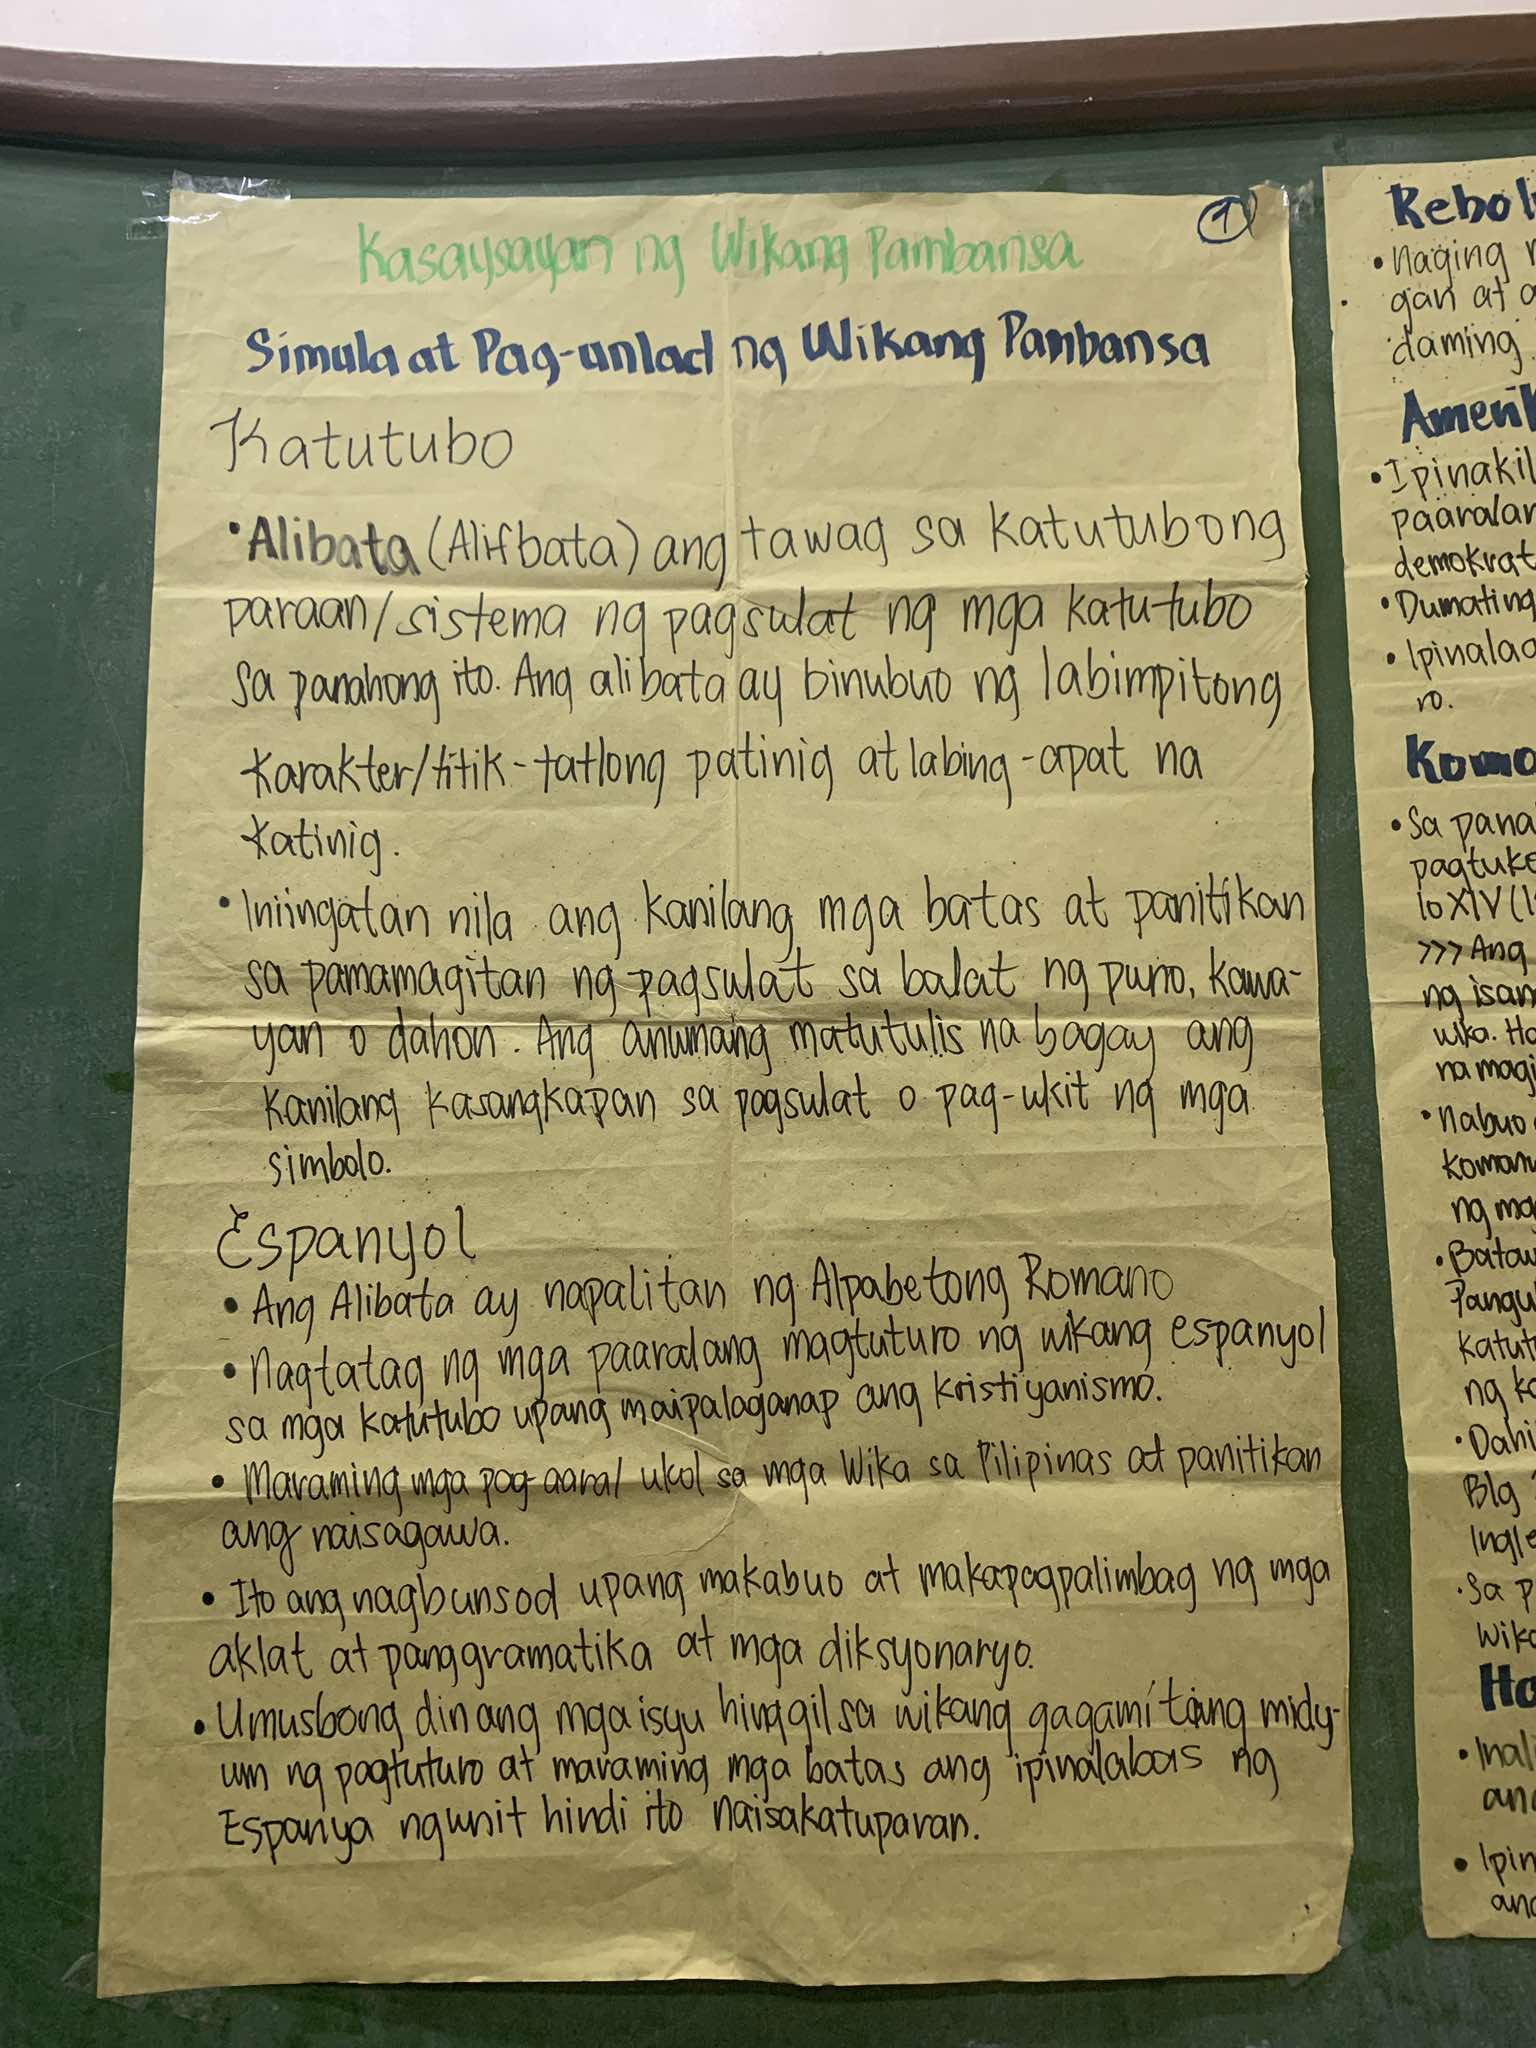 1
Kasaysayan ng Wikang Pambansa
Simula at Pag-unlad ng Wikang Pambansa
Katutubo
• Alibata (Alifbata) ang tawag sa katutubong
paraan/sistema ng pagsulat ng mga katutubo
sa panahong ito. Ang alibata ay binubuo ng labimpitong
karakter/titik-tatlong patinig at labing-apat na
katinig.
• Iniingatan nila ang kanilang mga batas at panitikan
sa pamamagitan ng pagsulat sa balat ng puno, kawa-
yan o dahon. Ang anumang matutulis na bagay ang
kanilang kasangkapan sa pagsulat o pag-ukit ng mga
simbolo.
Espanyol
• Ang Alibata ay napalitan ng Alpabetong Romano
• Nagtatag ng mga paaralang magtuturo ng wikang espanyol
sa mga katutubo upang maipalaganap ang kristiyanismo.
• Maraming mga pag-aaral ukol sa mga Wika sa Pilipinas at panitikan
ang naisagawa.
• Ito ang nagbunsod upang makabuo at makapagpalimbag ng mga
aklat at panggramatika at mga diksyonaryo.
• Umusbong din ang mga isyu hinggil sa wikang gagamitang midy-
um ng pagtuturo at maraming mga batas ang ipinalabas ng
Espanya ngunit hindi ito naisakatuparan.
• Naging
gan at
daming
• Ipinakil
paaralan
demokrat
• Dumating
• Ipinalag
ro.
• Sa pana
pagtuke
lo XIV (1
>>> Ang
ng isan
wika. Ho
na magi
• Nabuo
koman
ng mg
• Batay
Pangul
katut
ng ka
• Dahi
Blg
Ingle
• Sa p
Wika
Ha
• Inali
ang
• Ipin
ang